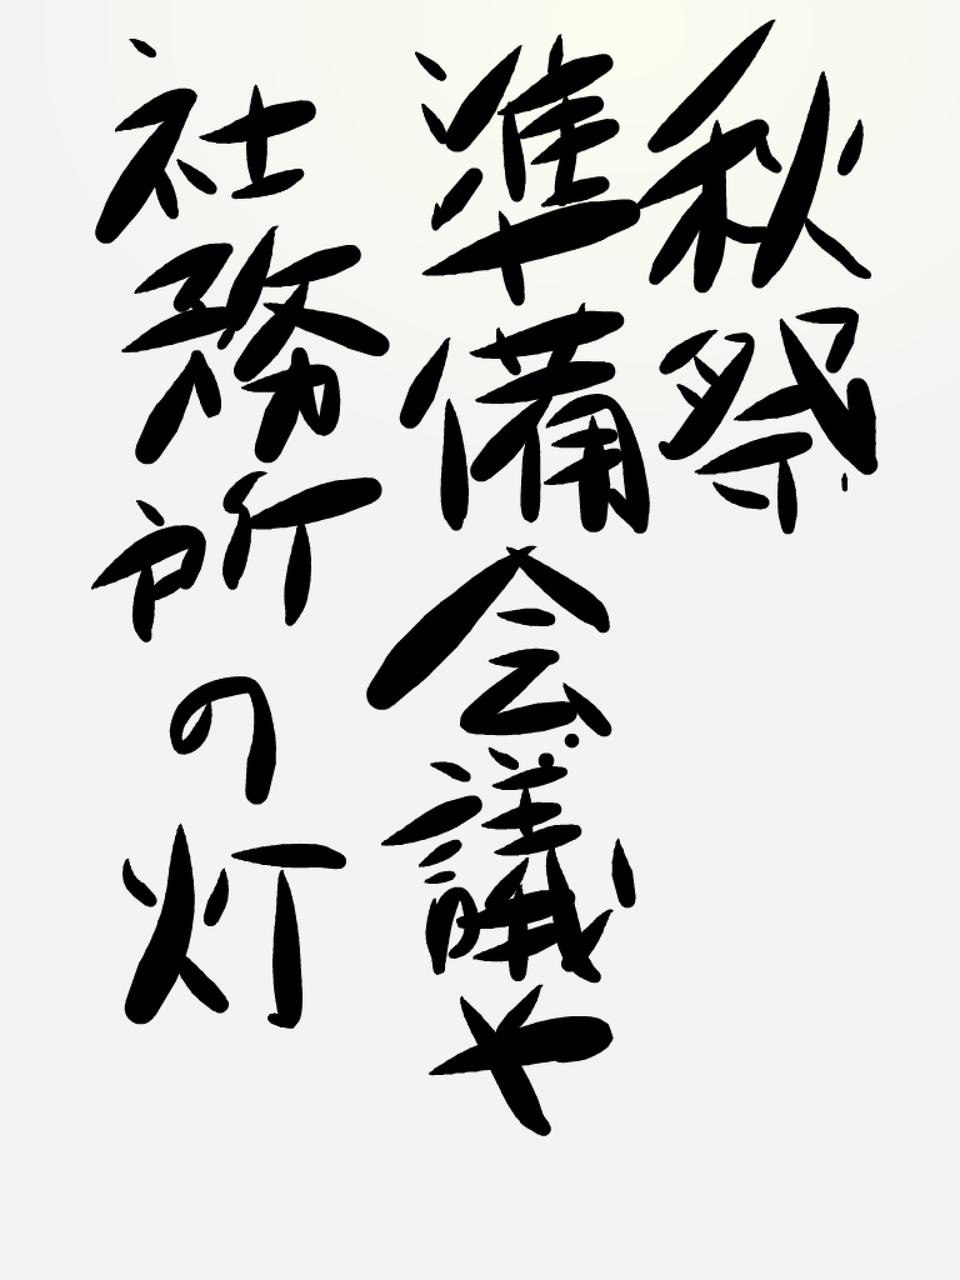 秋祭
準備会議や
社務所の灯